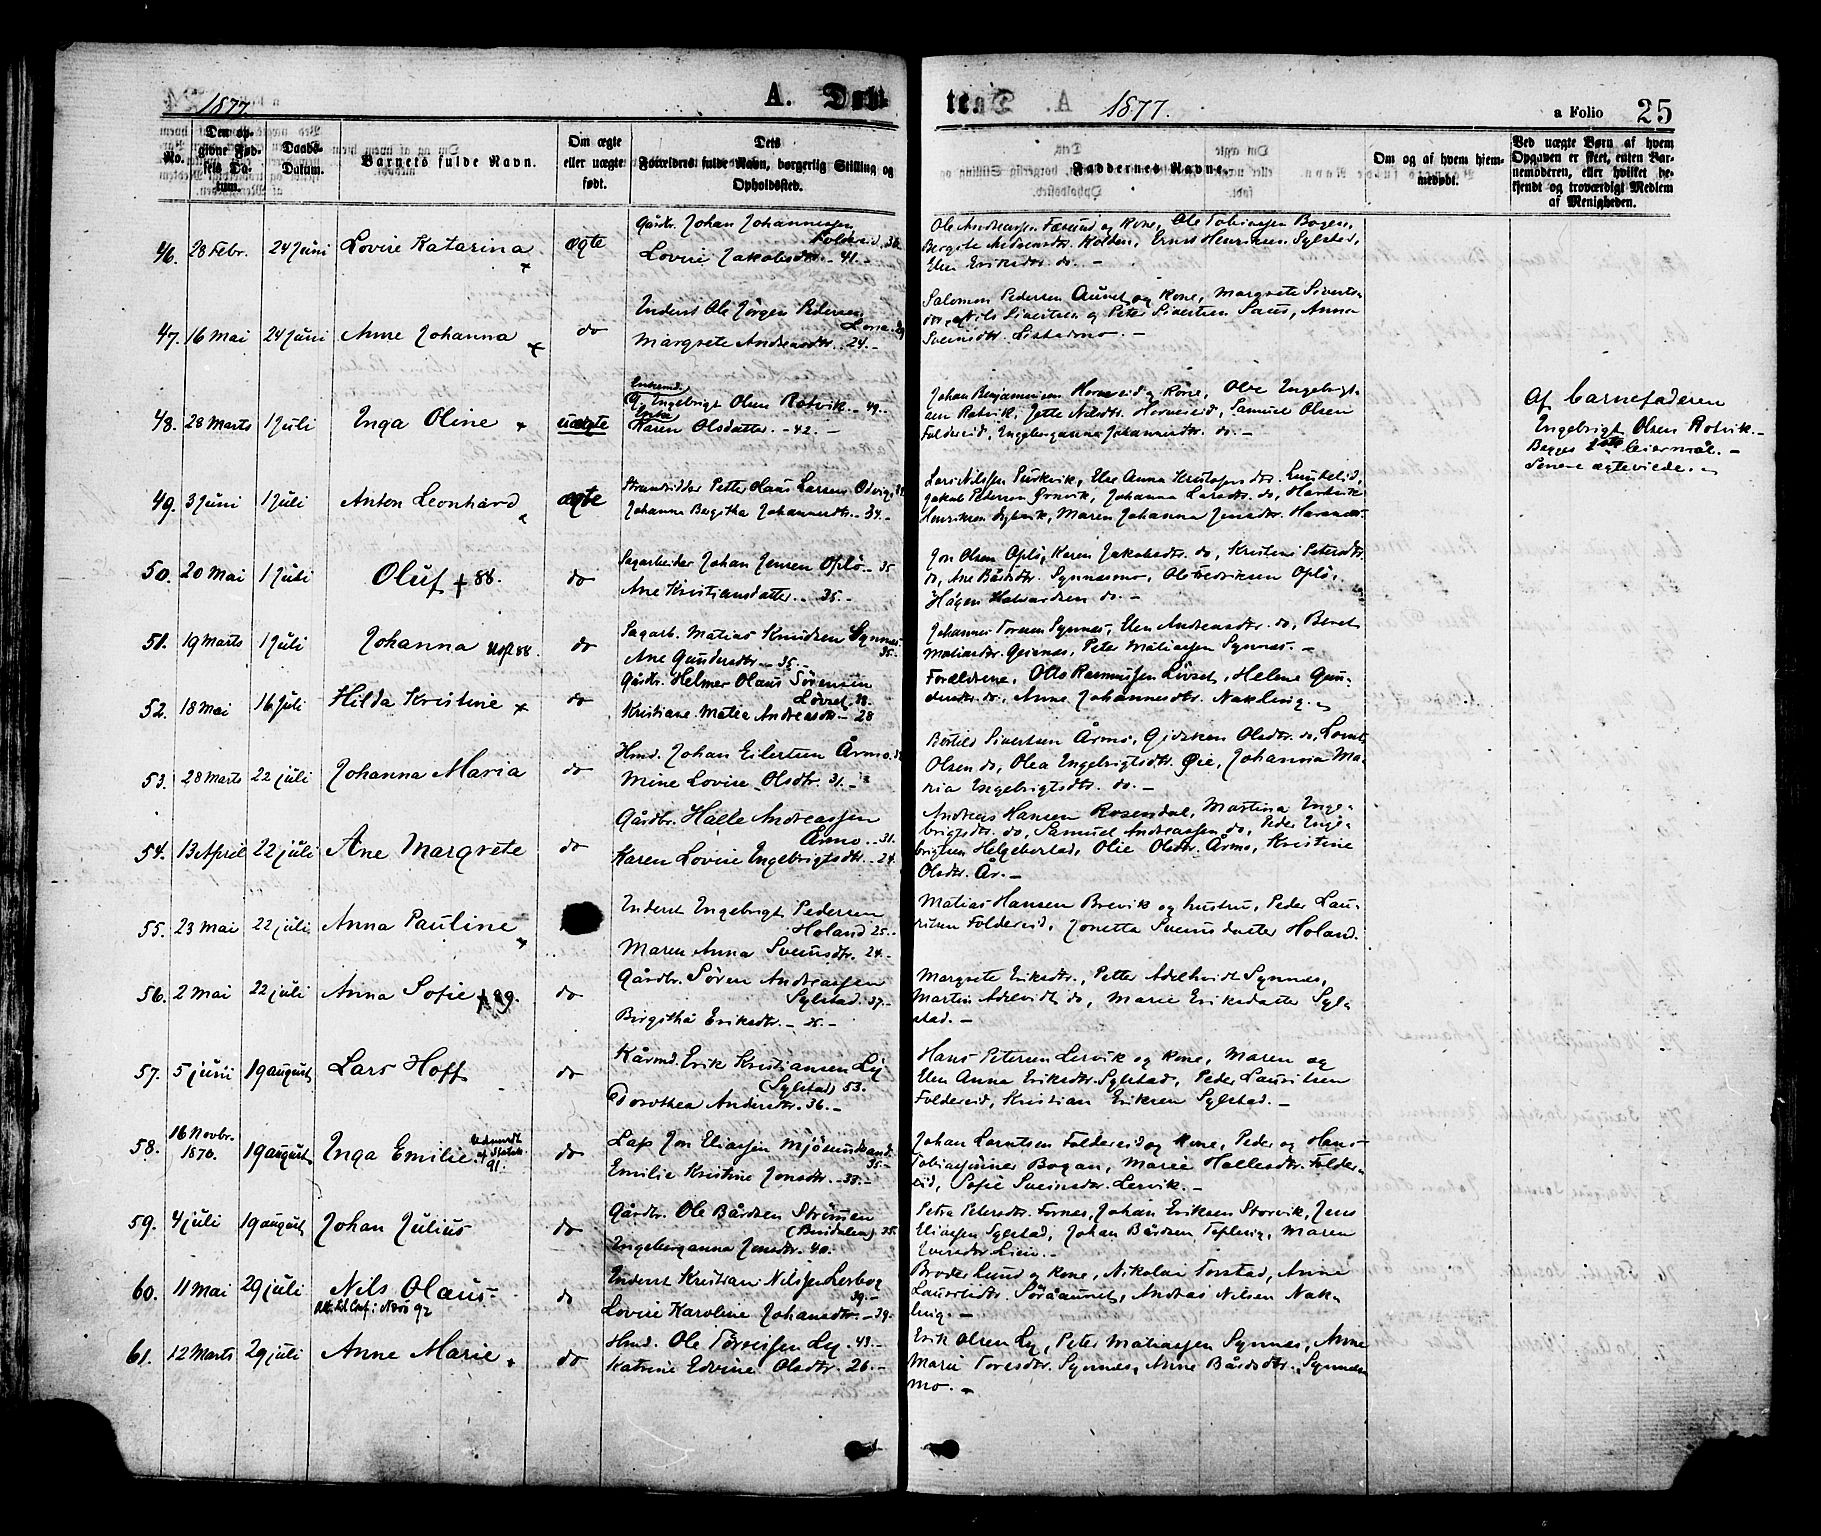 1877.
A. Døb-
te.
1877.
a Folio 25
No.
Den op-
givne Fød-
sels Da-
tum.
Daabs-
Datum.
Barnets fulde Navn.
Om ægte
eller uægte
født.
Dets
Forældres fulde Navn, borgerlig Stilling og
Opholdssted.
Faddernes Navne.
Om og af hvem hjem-
medøbt.
Ved uægte Børn af hvem
Opgaven er skeet, enten Bar-
nemoderen, eller hvilket be-
kjendt og troværdigt Medlem
af Menigheden.
46. 28 Febr. 24 Juni Lovise Katarina ægte
Gårdbr. Johan Johannessen
Foldereid, 38
Lovise Jakobsdtr. - 41. -
Ole Andreassen og Kone, Ole Tobiassen Bogen,
Bergete Andreasdtr. Kolden, Ernst Henriksen Sylstad,
Elen Eriksdtr. do. -
47. 16 Mai 24 Juni Anne Johanna do
Inderst Ole Jörgen Pedersen
Margrete Andreasdtr. 24. -
Salomon Pedersen Aunet og Kone, Margrete Siverts-
dtr, Nils Sivertsen og Peter Sivertsen Saus, Anna
Sveinsdtr. -
48. 28 Marts 1 Juli Inga Oline uægte
Enkemd.
Ingebrigt Olsen Rotvik. - 49. -
Karen Olsdatter. - 42. -
Johan Benjaminsen Horvereid og Kone, Olve Ingebrigt-
sen Rotvik, Jette Nilsdtr. Horvereid, Samuel Olsen
Foldereid, Ingeberganna Johannesdtr. do. -
Af barnefaderen
Ingebrigt Olsen Rotvik. -
Begges 1ste leiermål. -
49. 3 Juni 1 Juli Anton Leonhard ægte
Strandsidder Petter Olaus Larsen
Johanna Bergitha Johannesdtr. - 34. -
Lars Nilssen
Jakob Pedersen Örnvik, Johanna Larsdtr. do, Hartvik
Henriksen, Maren Johanna Jensdtr.
50. 20 Mai 1 Juli Oluf + 88. do
Sagarbeider Johan Jensen Oplö. - 35
Ane Kristiansdatter. - 35. -
Jon Olsen Oplö, Karen Jakobsdtr. do, Kristine Petersdtr.
do, Ane Bårdsdtr. Synnesmo, Ole Fredriksen Oplö,
Hågen Halvardsen do. -
51. 19 Marts 1 Juli Johanna 88. do
Sagarb. Matias Knudsen Synnes
35. -
Ane Gundersdtr. - 35. -
Johannes Toresen Synnes, Elen Andreasdtr. do, Beret
Matiasdtr., Peter Matiassen Synnes. -
52. 18 Mai 16 Juli Hilda Kristine do
Gårdbr. Helmer Olaus Sörensen
Lövset, 38.
Kristiane Matea Andreasdtr. - 28
Forældrene, Otto Rasmussen Lövset, Helene Gun-
dersdtr. do, Anne Johannesdtr. Nakling.
53. 28 Marts 22 juli Johanna Maria do
Hmd. Johan Eilertsen Årmo.
Mine Lovise Olsdtr. 31. -
Bertils Sivertsen Årmo, Olsdtr. do,
Olsen do, Olea Ingebrigtsdtr. Øie, Johanna Ma-
ria Ingebrigtsdtr. do. -
54. 13 April 22 juli Ane Margrete do
Gårdbr. Halle Andreassen
Årmo. - 31.
Karen Lovise Ingebrigtsdtr. - 24.
Andreas Hansen Rosendal, Martina Inge-
brigtsdtr. do, Samuel Andreassen do, Peder Inge-
brigtsen, Olie Olsdtr. Årmo, Kristine
Olsdtr. År. -
55. 23 Mai 22 juli Anna Pauline
Inderst Ingebrigt Pedersen
Holand 25. -
Maren Anna Sveinsdtr. 24. -
Matias Hansen Brevik og hustru, Peder Lau-
ritsen Foldereid, Jonetta Sveinsdatter Holand.
56. 2 Mai 22 juli Anna Sofie do
Gårdbr. Sören Andreassen
Sylstad. 37. -
Birgitha Eriksdtr. - 25. -
Margrete Eriksdtr., Petter Adelhvidt Synnes,
Martin Adelvidt do, Marie Eriksdatter Syl-
stad. -
57. 5 juni 19 august Lars Hoff do
Kårmd. Erik Kristiansen Ly
(Sylstad) 53.
Dorothea Andersdtr. - 36. -
Hans Petersen Lervik og kone, Maren og
Elen Anna Eriksdtr. Sylstad, Peder Lauritsen
Foldereid, Kristian Eriksen Sylstad. -
58. 16 Novbr. 1876. 19 august Inga Emilie 91. do
Lap Jon Eliassen Mjösundvand
35. -
Emilie Kristine Jonsdtr. - 33. -
Johan Larntsen Foldereid og Kone, Peder og Hans
Bogan, Marie Hallesdtr. Folder-
eid, Sofie Sveinsdtr. Lervik. -
59. 4 juli 19 august Johan Julius do
Gårdbr. Ole Bårdsen Strömmen
(Bindalen) 35.
Ingeberganna Jonsdtr. 40. -
Petra Petersdtr. Fornes, Johan Eriksen Storvik, Jens
Eliassen Sylstad, Johan Bårdsen Teplling, Maren
Iversdtr. Lien. -
60. 11 Mai 29 juli Nils Olaus do
Inderst Kristian Nilssen Lerbog
39. -
Lovise Karoline Johansdtr. - 39.
Broder Lund og Kone, Nikolai Torstad, Anne
Lauritsdtr. Söråaunet, Andreas Nilsen Nak-
ling. -
61. 12 Marts 29 juli Anne Marie do
Hmd. Ole Torrissen Ly. - 43. -
Katrine Edvine Olsdtr. 26. -
Erik Olsen Ly, Peter Matiassen Synnes, Anne
Marie Toresdtr. Synnes, Anne Bårdsdtr. Synnes-
mo. -